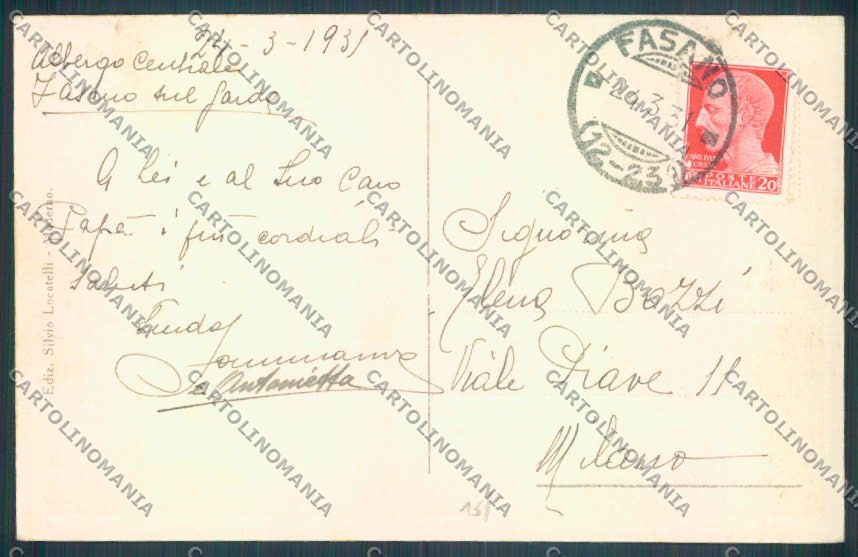 24-3-1931
Albergo Centrale
Fasano sul Garda
A Lei e al Suo Caro
Papà i più cordiali
saluti
e Antonietta
Ediz. Silvio Locatelli - Maderno.
FASANO
24.3.31
12-13
POSTE
ITALIANE 20
Signorina
Elena Bozzi
Viale Piave 11
Milano
CARTOLINOMANIA